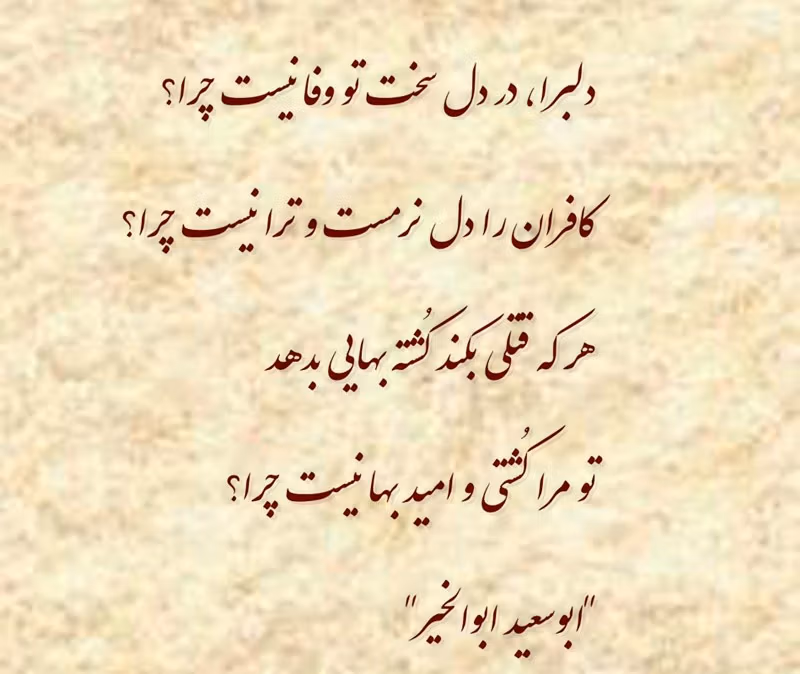 دلبرا، در دل سخت تو وفا نیست چرا؟
کافران را دل نرمست و ترا نیست چرا؟
هر که قتلی بکند کُشته بهایی بدهد
تو مرا کُشتی و امید بها نیست چرا؟
"ابوسعید ابوالخیر"